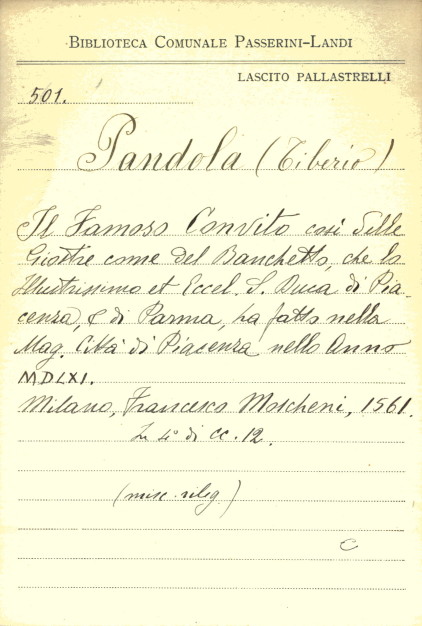 BIBLIOTECA COMUNALE PASSERINI-LANDI
LASCITO PALLASTRELLI
501.
Pandola (Tiberio)
Il Famoso Convito così delle
Giostre come del Banchetto, che lo
Illustrissimo et Eccel. S. Duca di Pia-
cenza, & di Parma, ha fatto nella
Mag. Città di Piacenza nello Anno
MDLXI.
Milano, Francesco Moscheni, 1561.
In 4° di cc. 12.
(misc. rileg.)
C